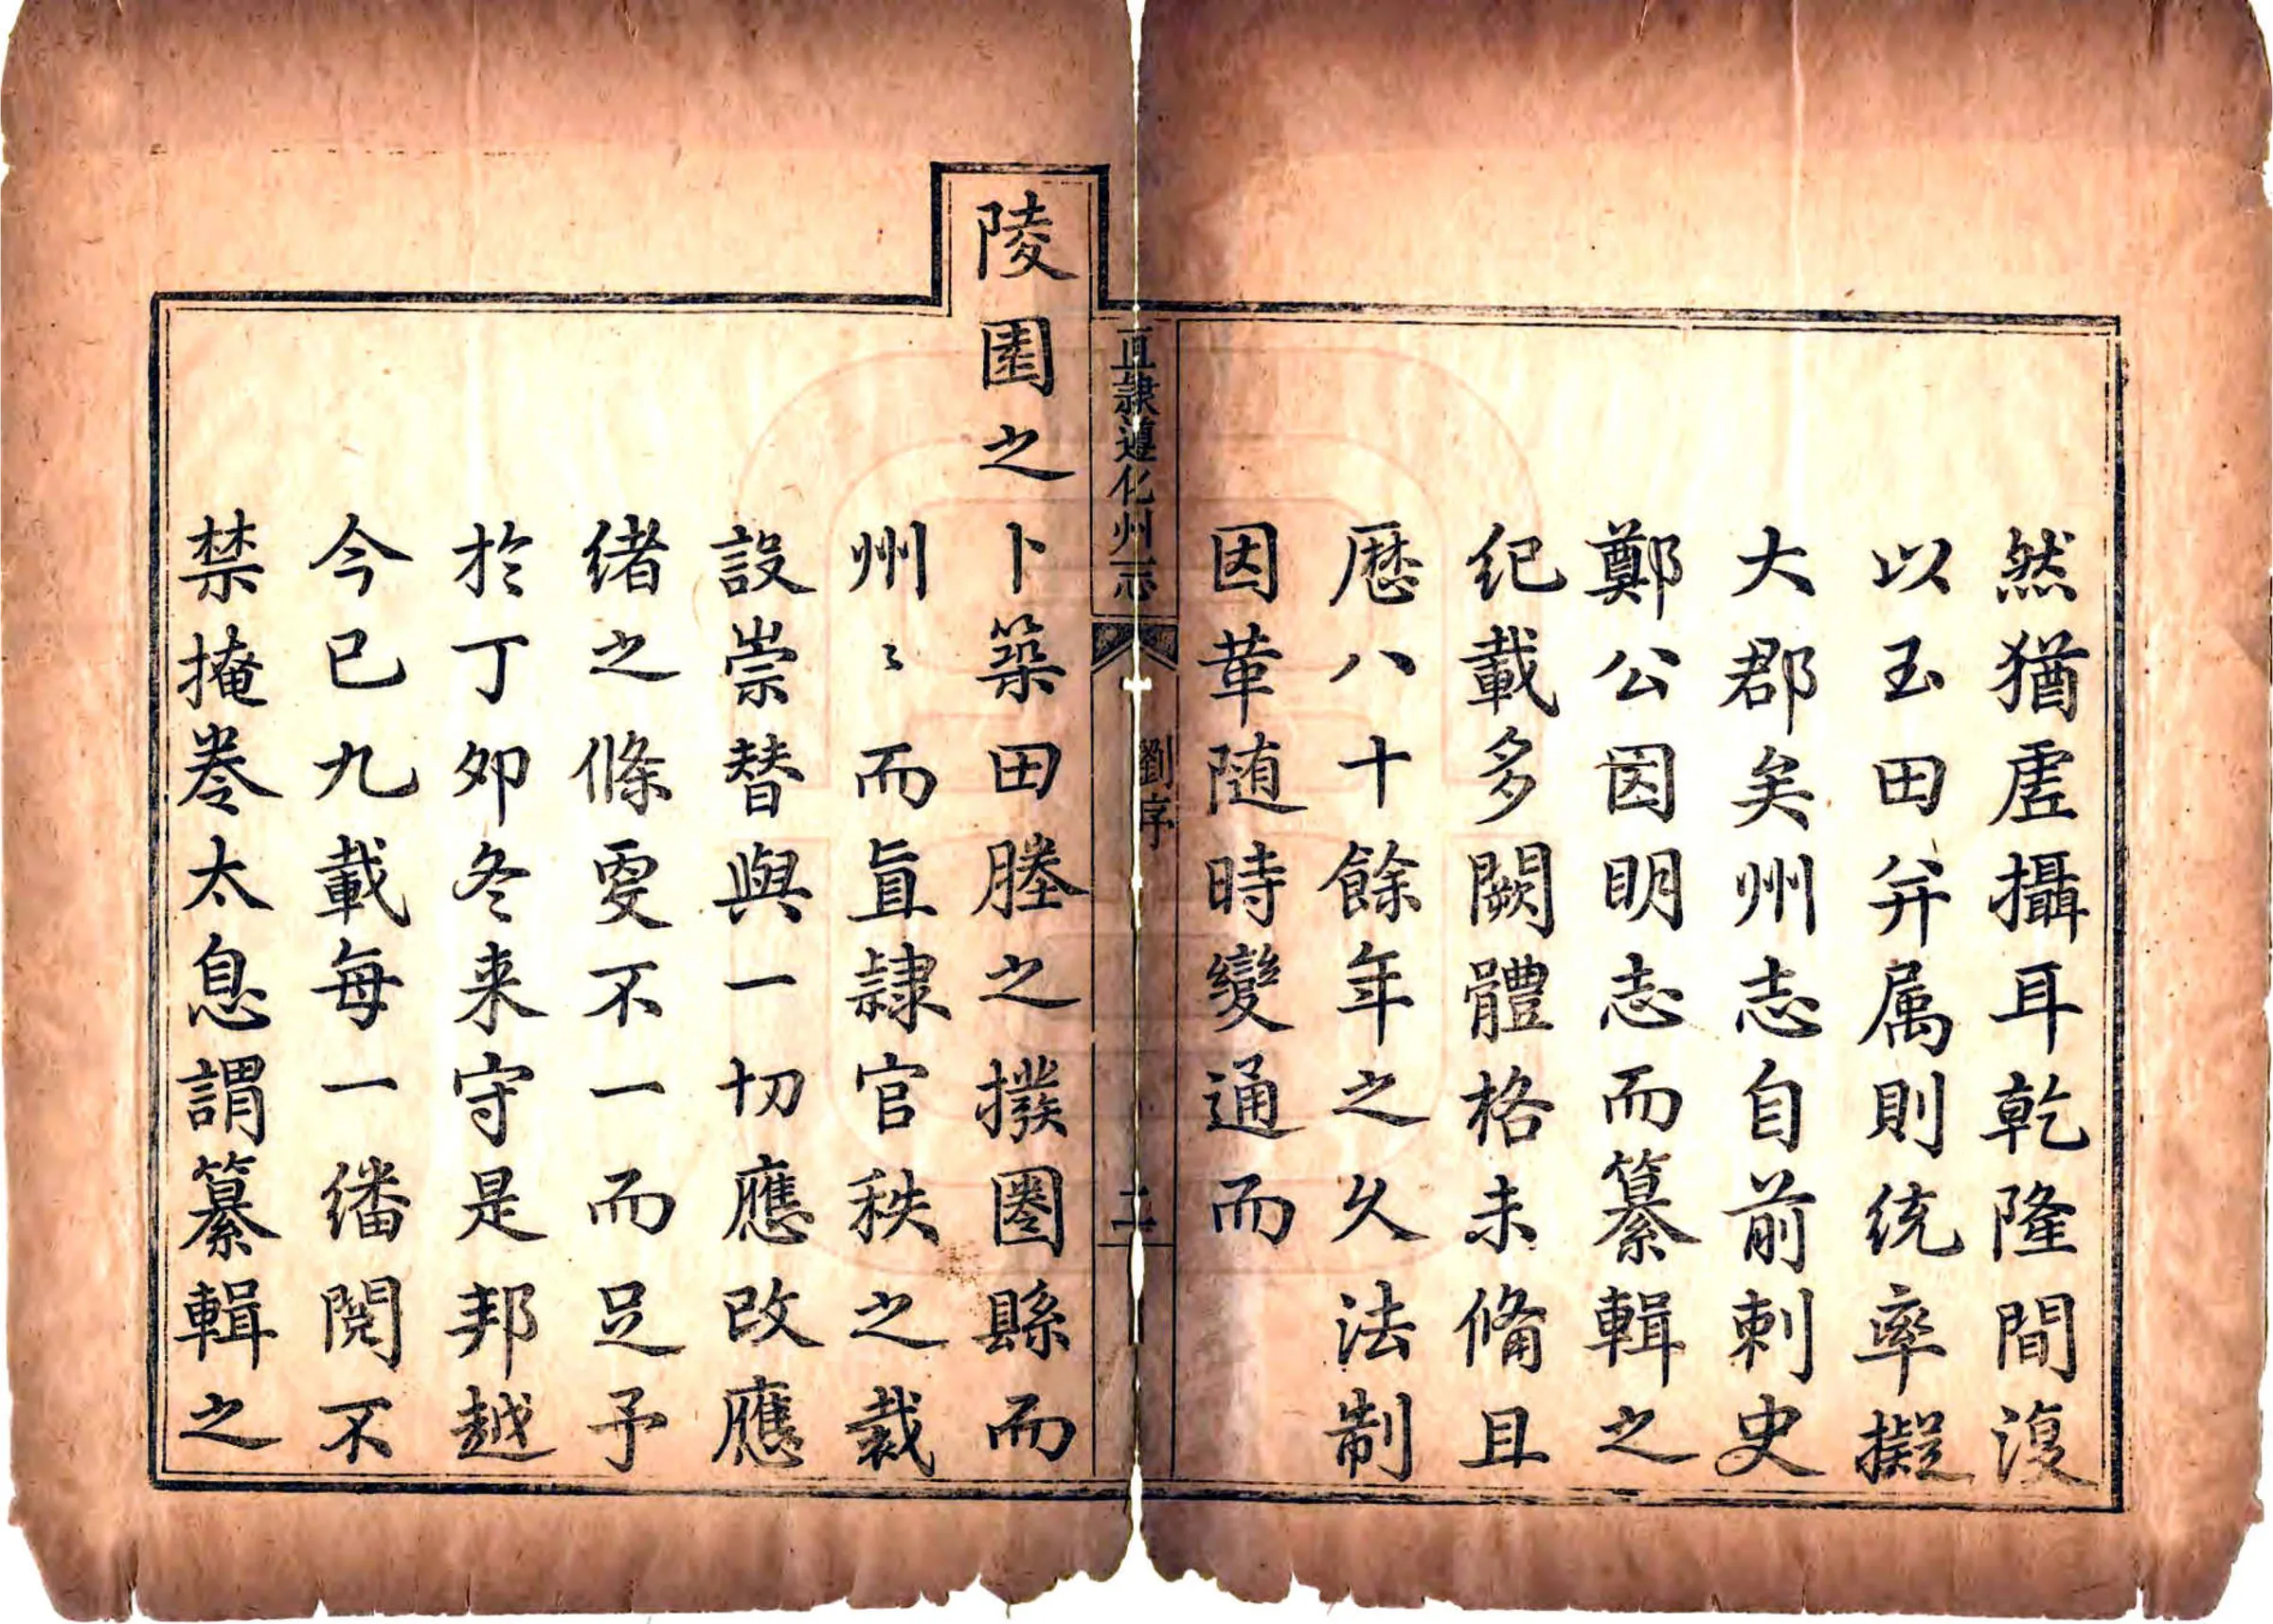 然猶虗攝耳乾隆間復
以玉田并属則统率擬
大郡矣州志自前刺史
鄭公因明志而纂輯之
纪載多闕體格未備且
歷八十餘年之久法制
因革随時變通而
直隸遵化州志
劉序
二
陵園之卜築田塍之撥圏縣而
州〻而直隷官秩之裁
設崇替與一切應改應
绪之條更不一而足予
於丁夘冬来守是邦越
今已九載每一繙閱不
禁掩卷太息謂纂輯之